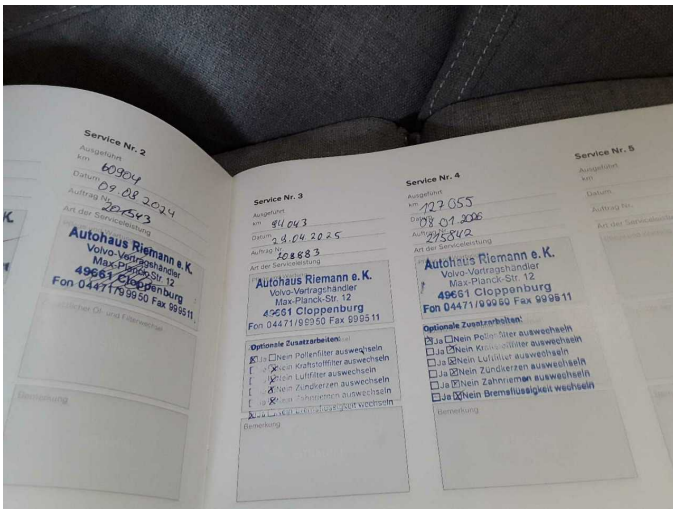 Service Nr. 2
Ausgeführt
km 60904
Datum 09.08 2024
Auftrag Nr. 201543
Art der Serviceleistung
Autohaus Riemann e. K.
Volvo-Vertragshändler
Max-Planck-Str. 12
49661 Cloppenburg
Fon 04471/99950 Fax 999511
Öl- und Filterwechsel
Service Nr. 3
Ausgeführt
km 94043
Datum 29.04 2025
Auftrag Nr. 208883
Art der Serviceleistung
Autohaus Riemann e. K.
Volvo-Vertragshändler
Max-Planck-Str. 12
49661 Cloppenburg
Fon 04471/99950 Fax 999511
Optionale Zusatzarbeiten:
Ja Nein Pollenfilter auswechseln
Nein Kraftstofffilter auswechseln
Nein Luftfilter auswechseln
Nein Zündkerzen auswechseln
Nein Zahnriemen auswechseln
Ja Nein Bremsflüssigkeit wechseln
Bemerkung
Service Nr. 4
Ausgeführt
km 127 055
Datum 08 01 2026
Auftrag Nr. 215842
Art der Serviceleistung
Autohaus Riemann e. K.
Volvo-Vertragshändler
Max-Planck-Str. 12
49661 Cloppenburg
Fon 04471/99950 Fax 999511
Optionale Zusatzarbeiten:
Ja Nein Pollenfilter auswechseln
Ja Nein Kraftstofffilter auswechseln
Ja Nein Luftfilter auswechseln
Ja Nein Zündkerzen auswechseln
Ja Nein Zahnriemen auswechseln
Ja Nein Bremsflüssigkeit wechseln
Bemerkung
Service Nr. 5
Ausgeführt
km
Datum
Auftrag Nr.
Art der Serviceleistung